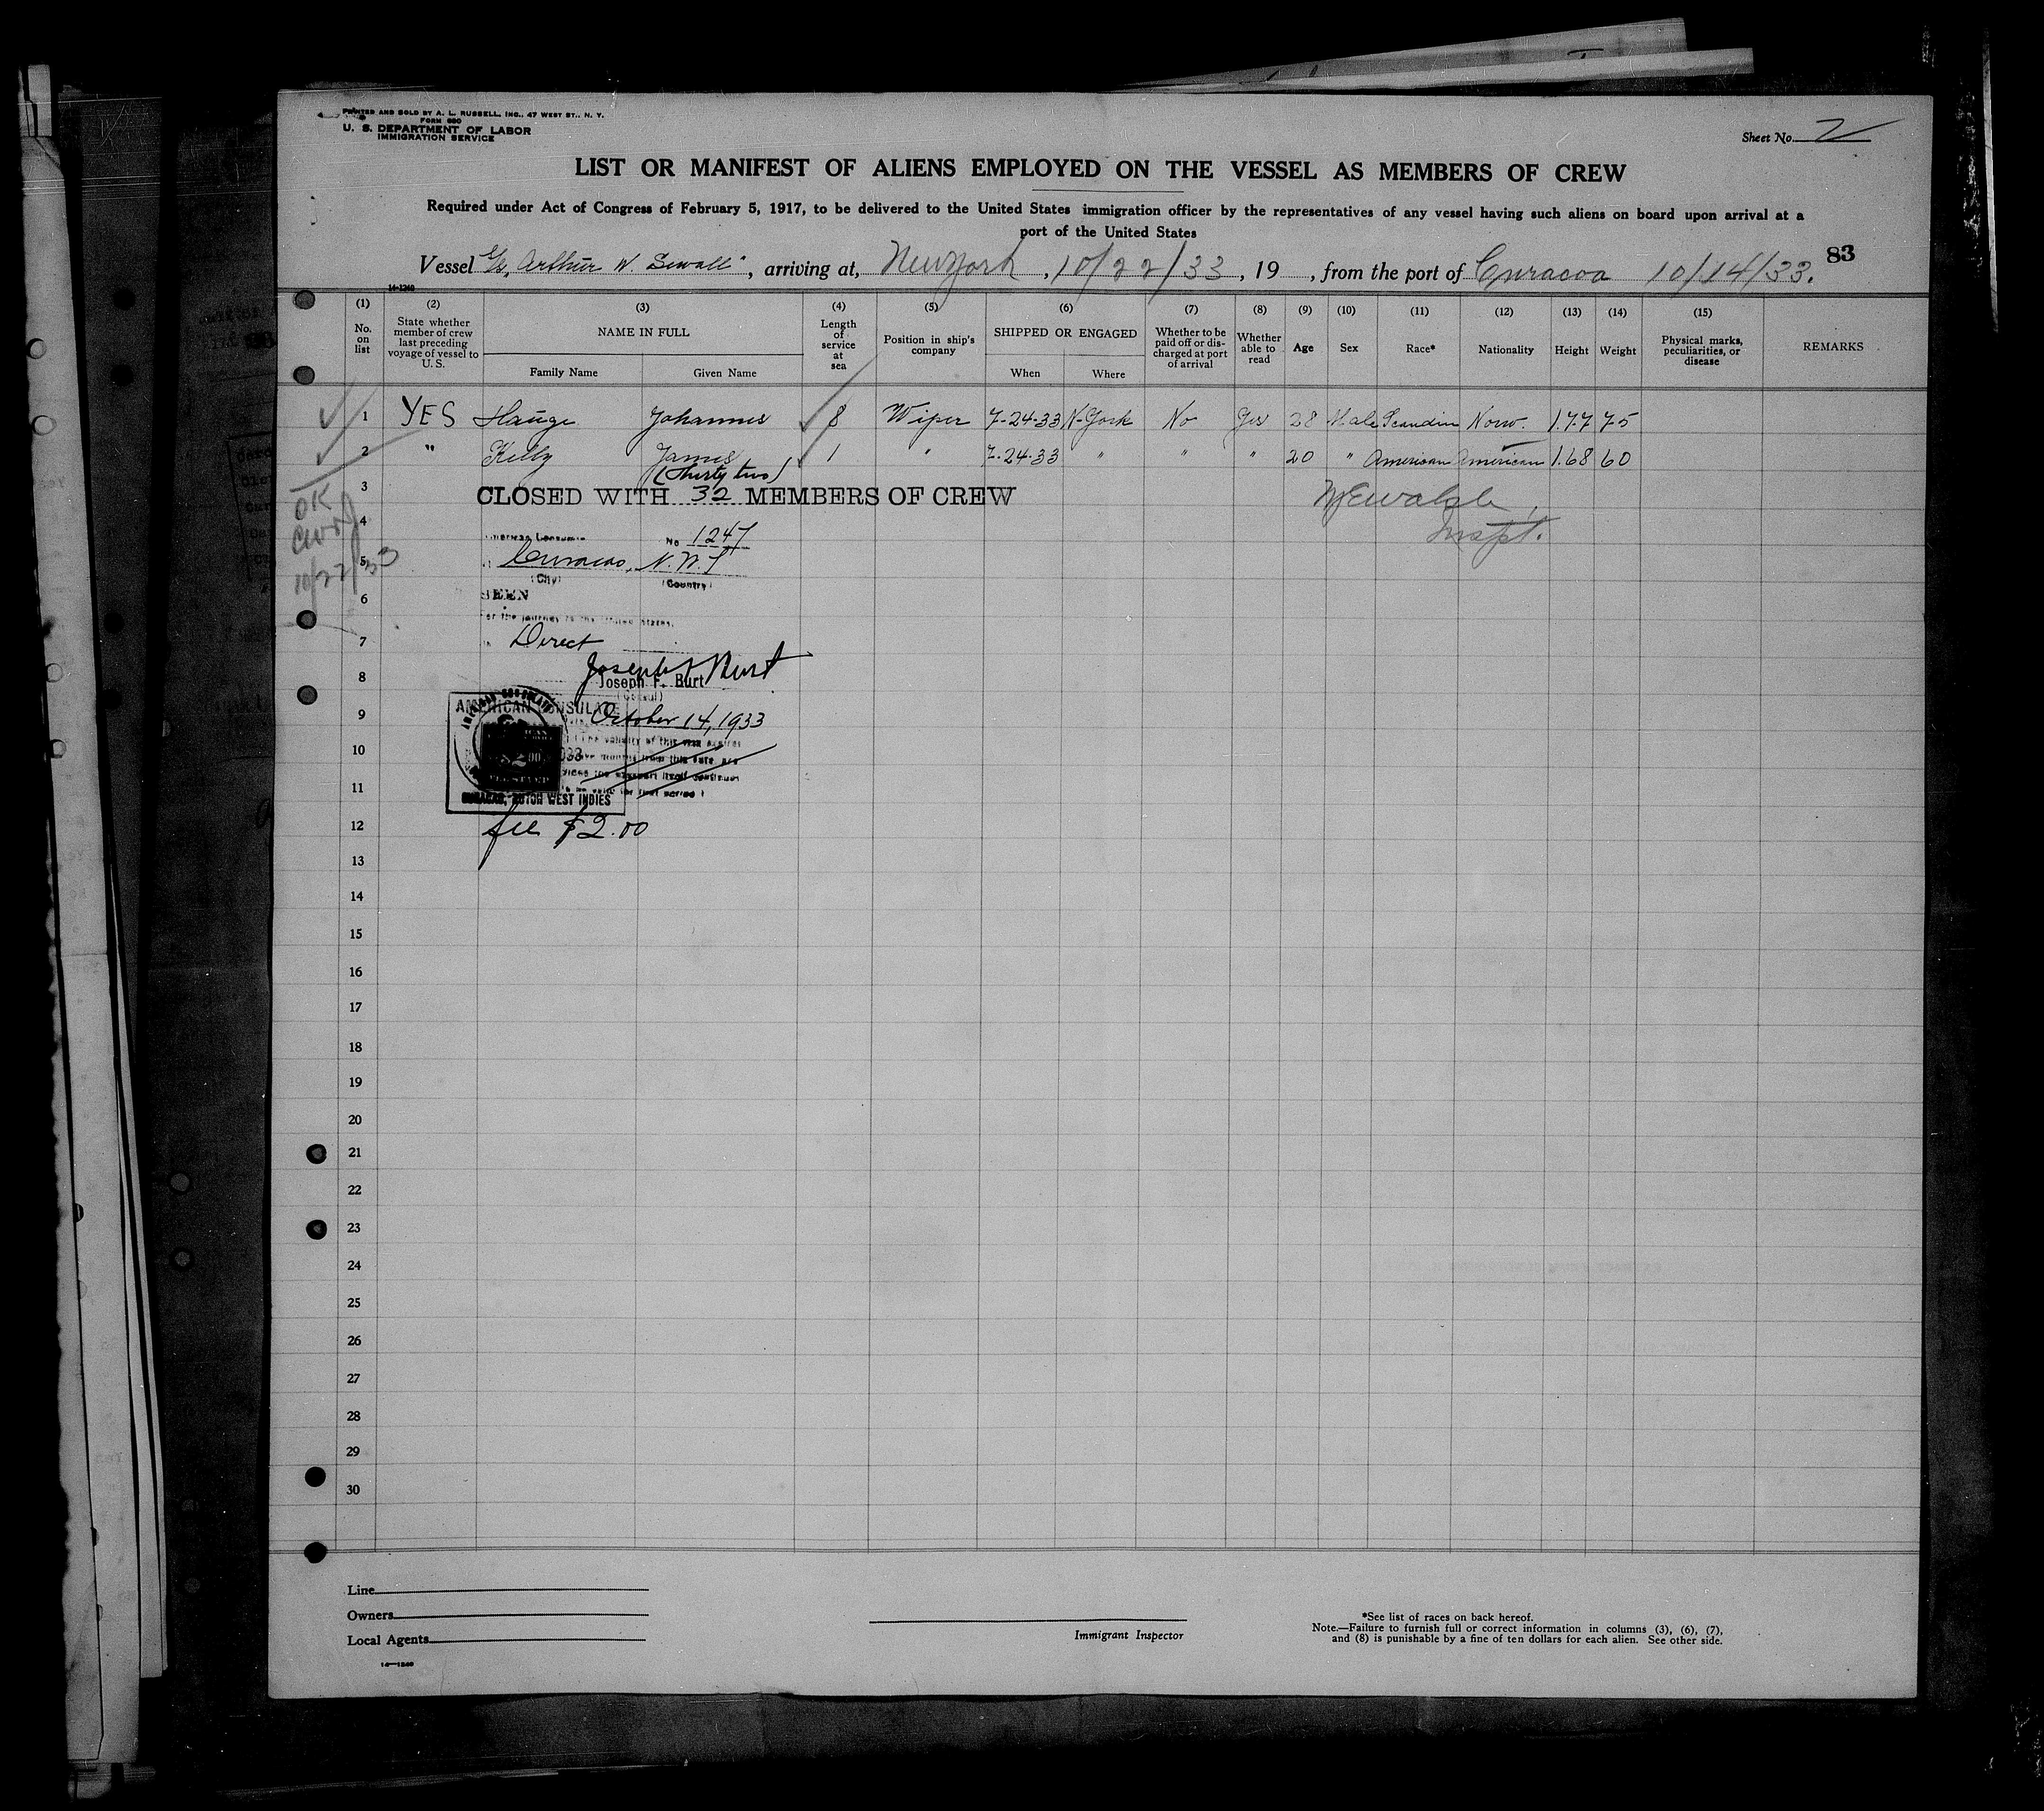 PRINTED AND SOLD BY A. L. RUSSELL, INC., 47 WEST ST., N. Y.
FORM 680
U. S. DEPARTMENT OF LABOR
IMMIGRATION SERVICE
Sheet No. 2
LIST OR MANIFEST OF ALIENS EMPLOYED ON THE VESSEL AS MEMBERS OF CREW
Required under Act of Congress of February 5, 1917, to be delivered to the United States immigration officer by the representatives of any vessel having such aliens on board upon arrival at a
port of the United States
83
Vessel Arthur W. Sewall", arriving at, New York, 10/22/33, 19 , from the port of Curacoa 10/14/33.
14-1240
(1) (2) (3) (4) (5) (6) (7) (8) (9) (10) (11) (12) (13) (14) (15)
No. on list
State whether member of crew last preceding voyage of vessel to U. S.
NAME IN FULL
Family Name Given Name
Length of service at sea
Position in ship's company
SHIPPED OR ENGAGED
When Where
Whether to be paid off or discharged at port of arrival
Whether able to read
Age
Sex
Race*
Nationality
Height
Weight
Physical marks, peculiarities, or disease
REMARKS
1 YES Hauge Johannes 8 Wiper 7-24-33 N-York No Yes 28 Male Scandin Norw. 1.77 75
2 " Kelly James 1 " 7-24-33 " " " 20 " American American 1.68 60
(Thirty two)
3 CLOSED WITH 32 MEMBERS OF CREW
Inspt.
OK
10/22/33
4 No 1247
5 Curacao, N.W.I
(City) (Country)
6 SEEN
For the journey to the United States.
7 Direct
8 Joseph F. Burt
(Consul)
AMERICAN CONSULATE
9 October 14, 1933
10
11
CURACAO, DUTCH WEST INDIES
12 fee $2.00
13
14
15
16
17
18
19
20
21
22
23
24
25
26
27
28
29
30
Line
Owners
Local Agents
14-1240
Immigrant Inspector
*See list of races on back hereof.
Note.—Failure to furnish full or correct information in columns (3), (6), (7),
and (8) is punishable by a fine of ten dollars for each alien. See other side.